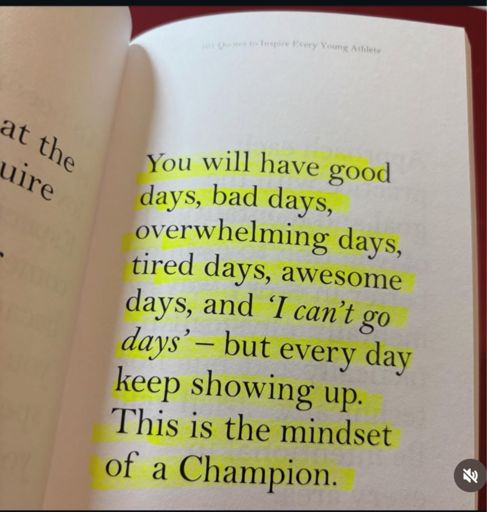 101 Quotes to Inspire Every Young Athlete
at the
uire
You will have good
days, bad days,
overwhelming days,
tired days, awesome
days, and ‘I can’t go
days’ – but every day
keep showing up.
This is the mindset
of a Champion.